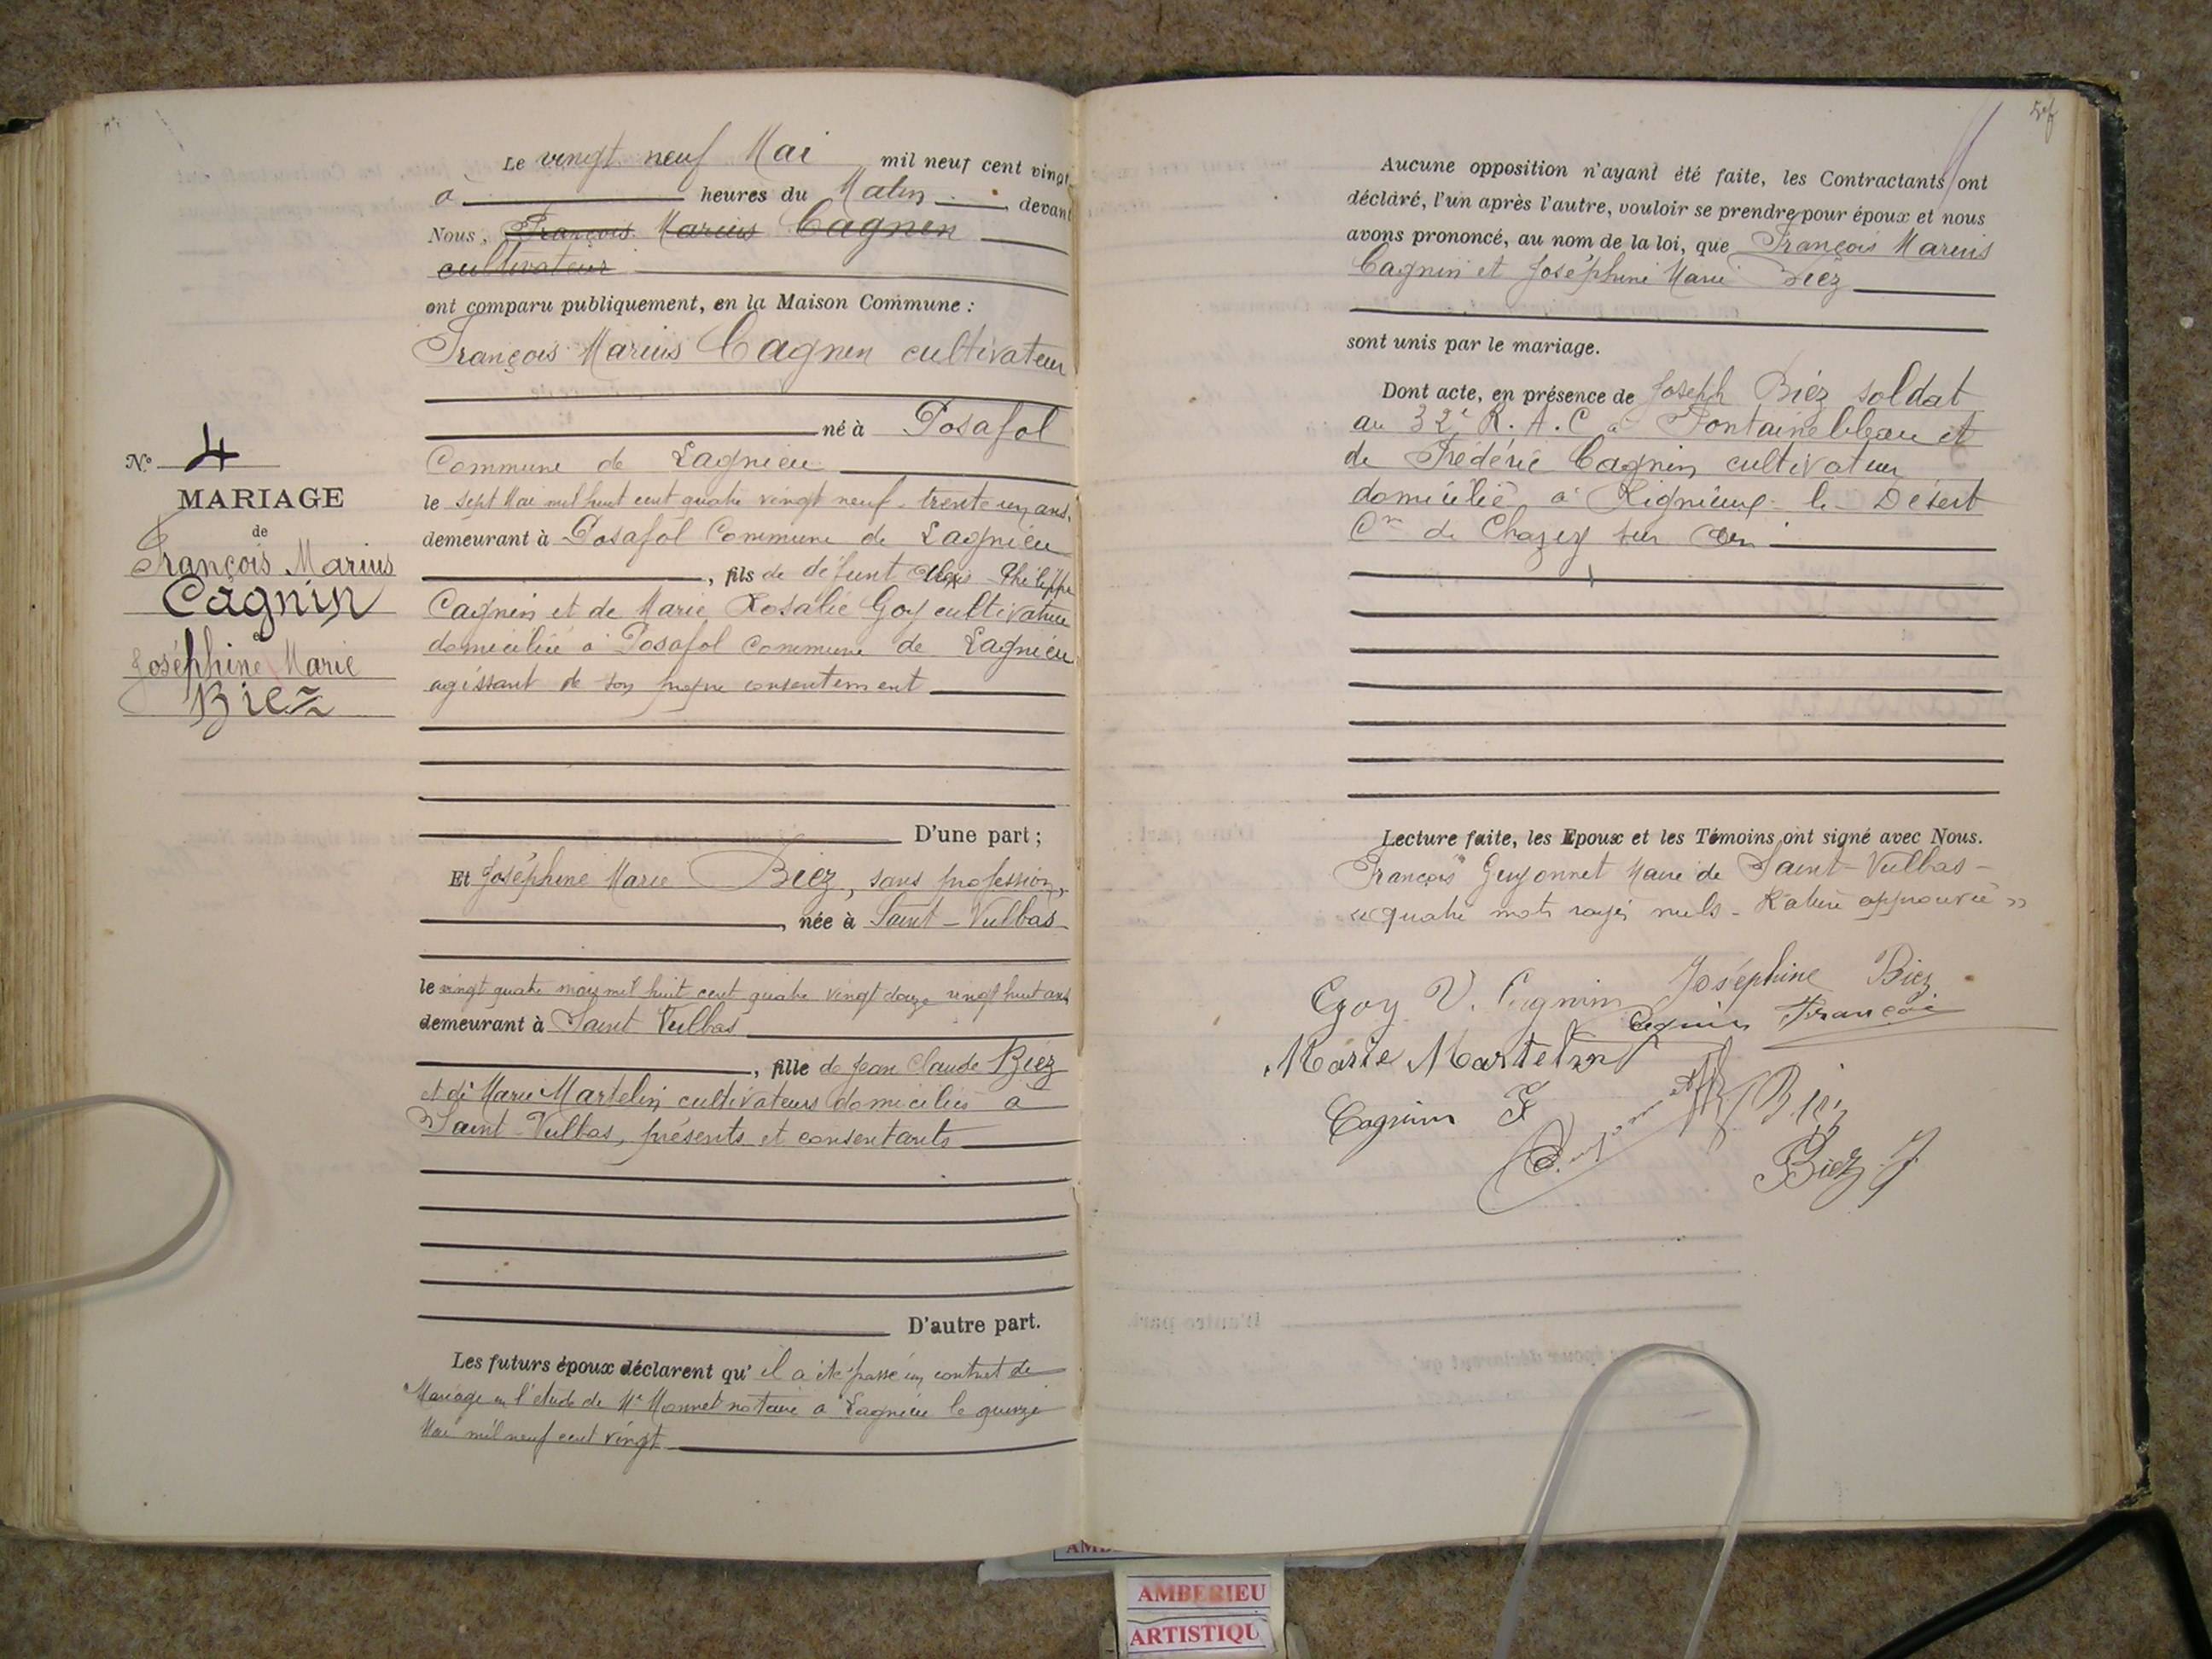 Le vingt neuf Mai mil neuf cent vingt
à heures du Matin, devant
Nous, François Marius Cagnin
cultivateur
ont comparu publiquement, en la Maison Commune :
François Marius Cagnin cultivateur
né à Posafol
Commune de Lagnieu
le sept Mai mil huit cent quatre vingt neuf - trente un ans,
demeurant à Posafol Commune de Lagnieu
, fils de défunt Alexis Philippe
Cagnin et de Marie Rosalie Goy cultivatrice
domiciliée à Posafol commune de Lagnieu
agissant de son propre consentement
D'une part ;
Et Joséphine Marie Biez, sans profession,
, née à Saint-Vulbas
le vingt quatre mars mil huit cent quatre vingt douze vingt huit ans
demeurant à Saint Vulbas
, fille de Jean Claude Biez
et de Marie Martelin cultivateurs domiciliés à
Saint-Vulbas, présents et consentants
D'autre part.
Les futurs époux déclarent qu'il a été passé un contrat de
Mariage en l'étude de Me Monnet notaire à Lagnieu le quinze
Mai mil neuf cent vingt
No 4
MARIAGE
de
François Marius
Cagnin
et
Joséphine Marie
Biez
Aucune opposition n'ayant été faite, les Contractants ont
déclaré, l'un après l'autre, vouloir se prendre pour époux et nous
avons prononcé, au nom de la loi, que François Marius
Cagnin et Joséphine Marie Biez
sont unis par le mariage.
Dont acte, en présence de Joseph Biez soldat
au 32e R.A.C à Fontainebleau et
de Frédéric Cagnin cultivateur
domicilié à Rignieux-le-Désert
Cne de Chazey sur Ain
Lecture faite, les Epoux et les Témoins ont signé avec Nous.
François Guyonnet Maire de Saint-Vulbas -
« quatre mots rayés nuls - Rature approuvée »
Goy V. Cagnin Joséphine Biez
Cagnin François
Marie Martelin
Cagnin F Biez
Biez J
AMBERIEU
ARTISTIQU